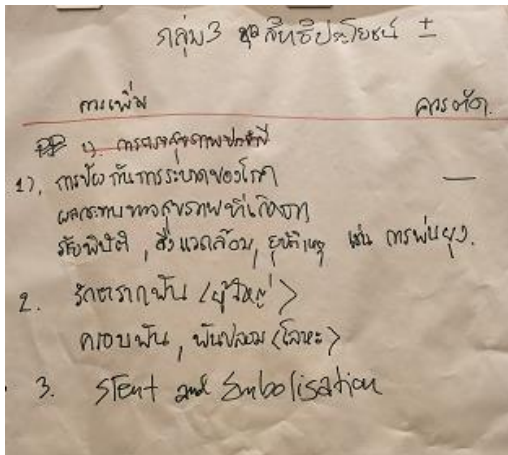 กลุ่ม 3 ชุดสิทธิประโยชน์ ±
ควรเพิ่ม ควรตัด.
1) การตรวจสุขภาพประจำปี
1), การป้องกันการระบาดของโรค —
ผลกระทบทางสุขภาพที่เกิดจาก
ภัยพิบัติ, สิ่งแวดล้อม, อุบัติเหตุ เช่น การพ่นยุง.
2. รักษารากฟัน (ผู้ใหญ่)
ครอบฟัน, ฟันปลอม (โลหะ)
3. Stent and Embolisation